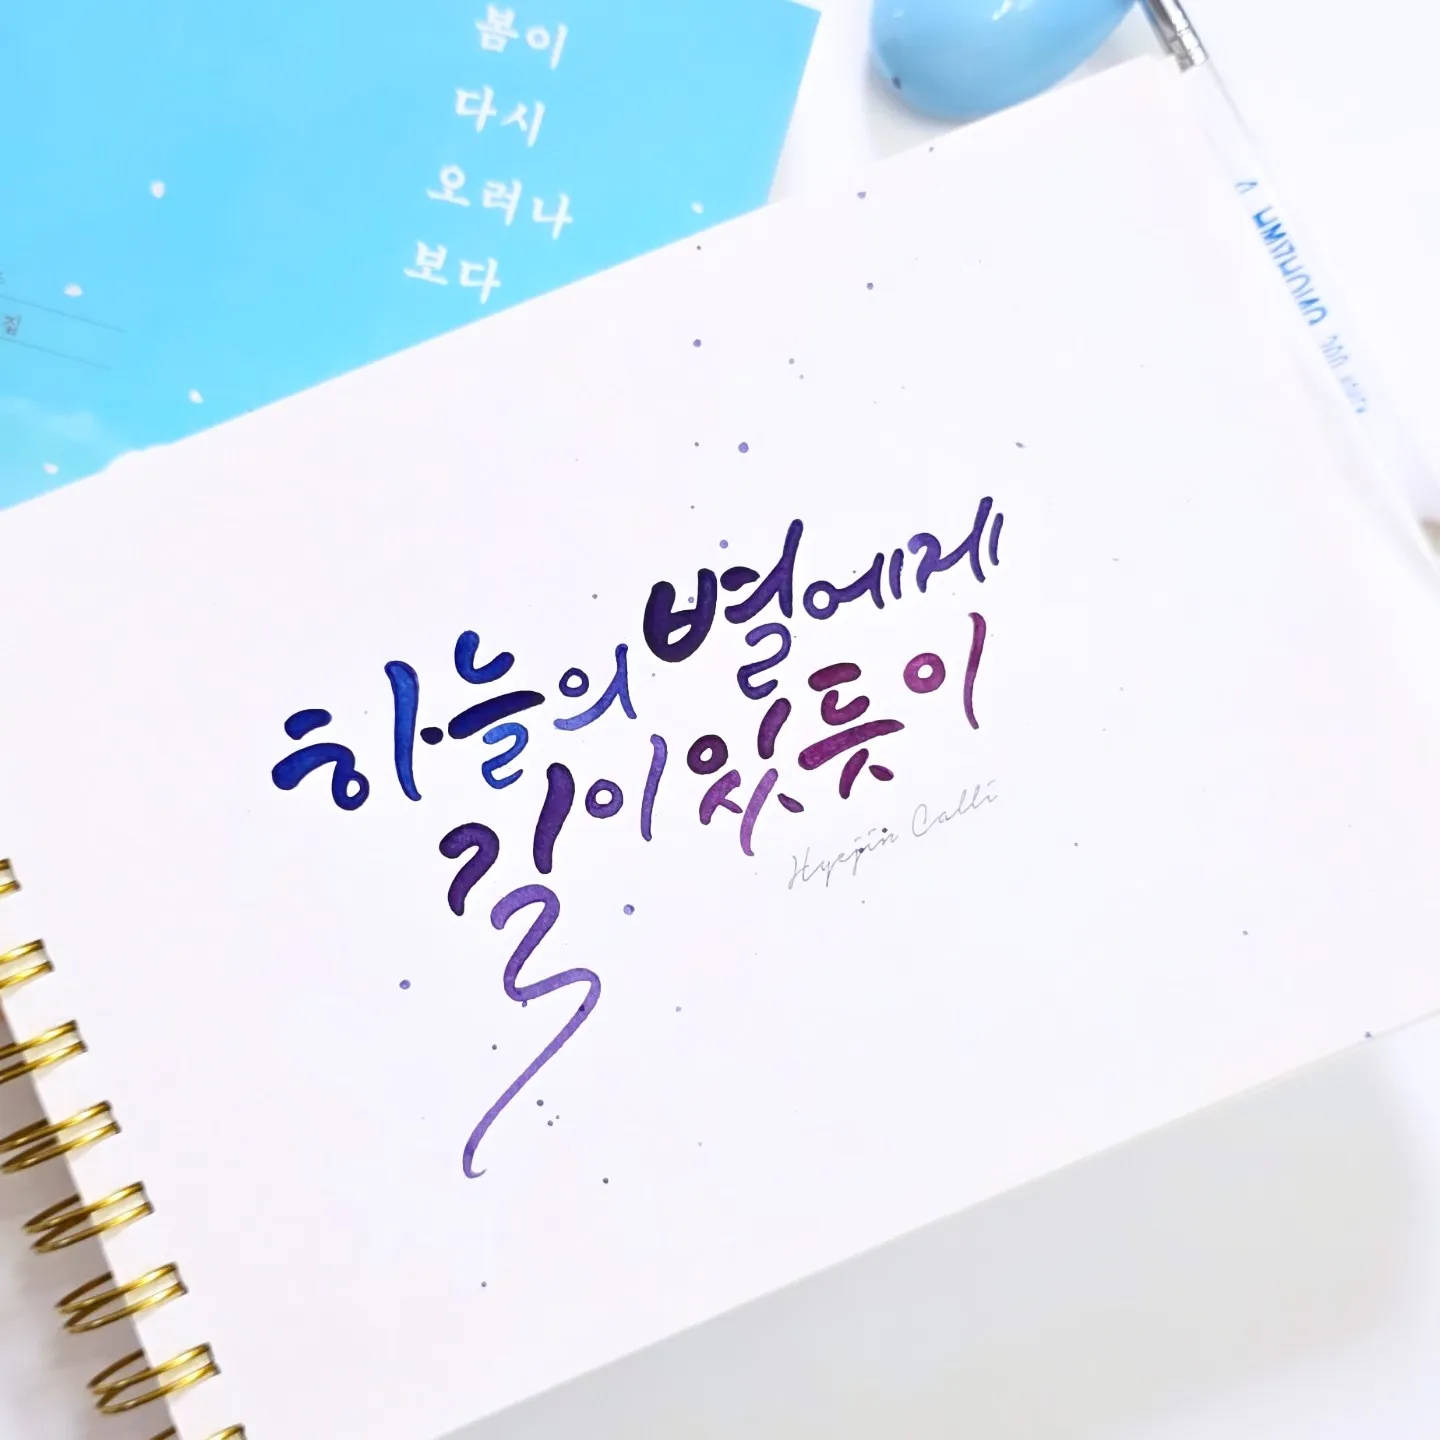 봄이
다시
오려나
보다
집
하늘의 별에게
길이 있듯이
Hyejin Calli
HWAHONG